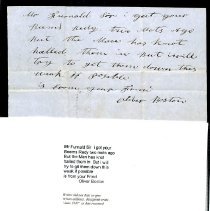 Mr Furnald Sir i got your
Beams Redy two Mets Ago
But the Man has knot
halled them in but i will
try to get them down this
weak if posable
is from your Friend
Oliver Boston
Mr Furnald Sir i got your
Beams Redy two mets ago
But the Man has knot
halled them in But i will
try to git them down this
weak if possible
is from your Frind
Oliver Boston